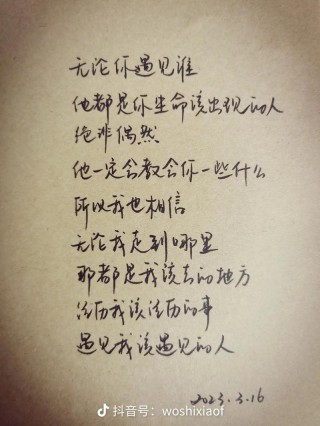 无论你遇见谁
他都是你生命该出现的人
绝非偶然
他一定会教会你一些什么
所以我也相信
无论我走到哪里
那都是我该去的地方
经历我该经历的事
遇见我该遇见的人
2023.3.16
抖音号：woshixiaof